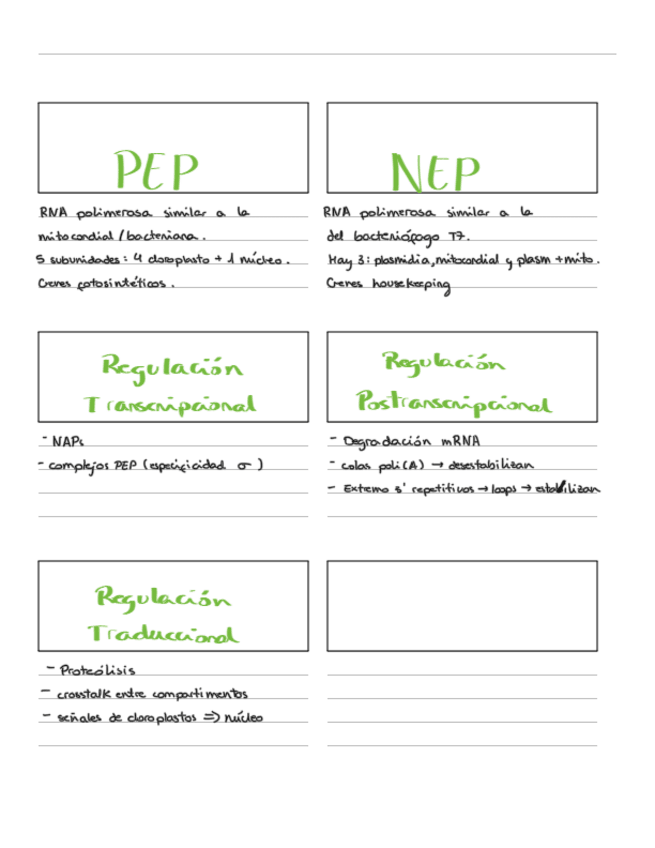 PEP
RNA polimerasa similar a la
mitocondial / bacteriana.
5 subunidades: 4 cloroplasto + 1 núcleo.
Genes fotosintéticos.
NEP
RNA polimerasa similar a la
del bacteriófago T7.
Hay 3: plasmidia, mitocondial y plasm + mito.
Genes housekeeping
Regulación
Transcripcional
- NAPs
- complejos PEP (especificidad σ)
Regulación
Postranscripcional
- Degradación mRNA
- colas poli(A) → desestabilizan
- Extremo 3' repetitivos → loops → estabilizan
Regulación
Traduccional
- Proteólisis
- crosstalk entre compartimentos
- señales de cloroplastos => núcleo